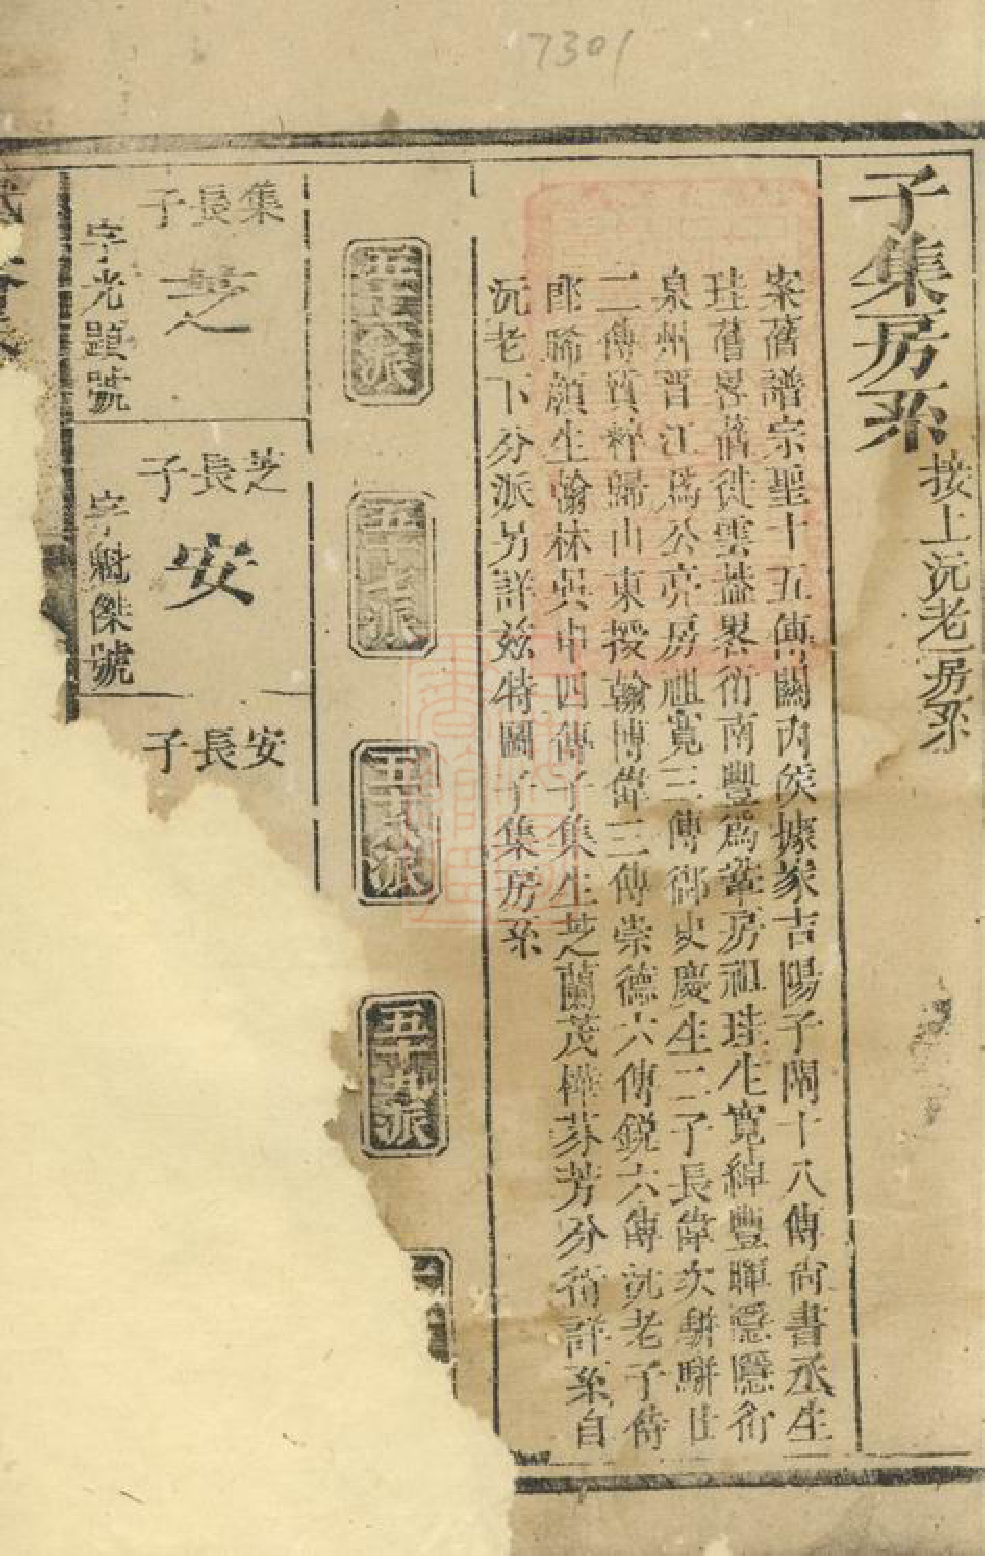 7301
子集房系
按上沅老房系
案舊譜宗聖十五傳關內侯據家吉陽子闡十八傳尚書丞生
珪舊畧舊徙雲葢畧衍南豐爲鞏房祖珪生寬綽豐暉隱衍
泉州晋江爲公亮房祖寬三傳御史慶生二子長偉次駢駢世
二傳質粹歸山東授翰博偉三傳崇德六傳銳六傳沅老子侍
郎晞顔生翰林吳中四傳子集生芝蘭茂樺芬芳分衍詳系自
沅老下分派另詳兹特圖子集房系
五十六派
五十七派
五十八派
五十九派
集長子
芝
字光題號
芝長子
安
字魁傑號
安長子